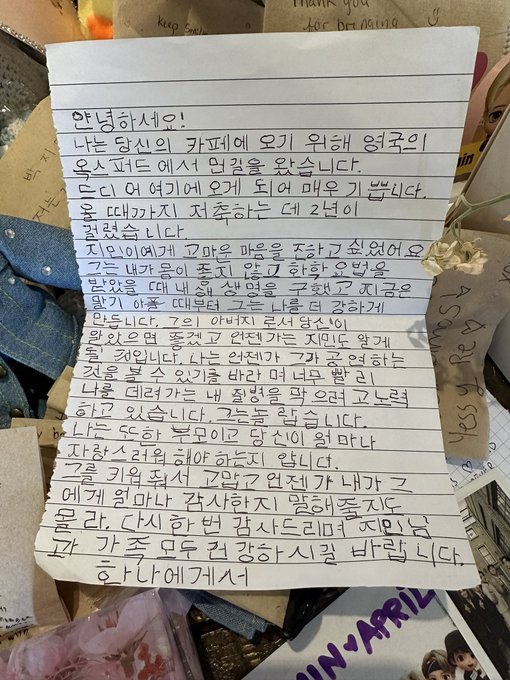 Thank you
for bringing
keep Smiling
안녕하세요!
나는 당신의 카페에 오기 위해 영국의
옥스퍼드에서 먼길을 왔습니다.
드디어 여기에 오게 되어 매우 기쁩니다.
올 때까지 저축하는 데 2년이
걸렸습니다.
지민이에게 고마운 마음을 전하고 싶었어요
그는 내가 몸이 좋지 않고 화학 요법을
받았을 때 내 생명을 구했고 지금은
말기 아플 때부터 그는 나를 더 강하게
만듭니다. 그의 아버지로서 당신이
알았으면 좋겠고 언젠가는 지민도 알게
될 것입니다. 나는 언젠가 그가 공연하는
것을 볼 수 있기를 바라며 너무 빨리
나를 데려가는 내 질병을 막으려고 노력
하고 있습니다. 그는 놀랍습니다.
나는 또한 부모이고 당신이 얼마나
자랑스러워 해야 하는지 압니다.
그를 키워줘서 고맙고 언젠가 내가 그
에게 얼마나 감사한지 말해줄지도
몰라. 다시 한 번 감사드리며 지민님
과 가족 모두 건강하시길 바랍니다.
한나에게서
MIN♥APRIL